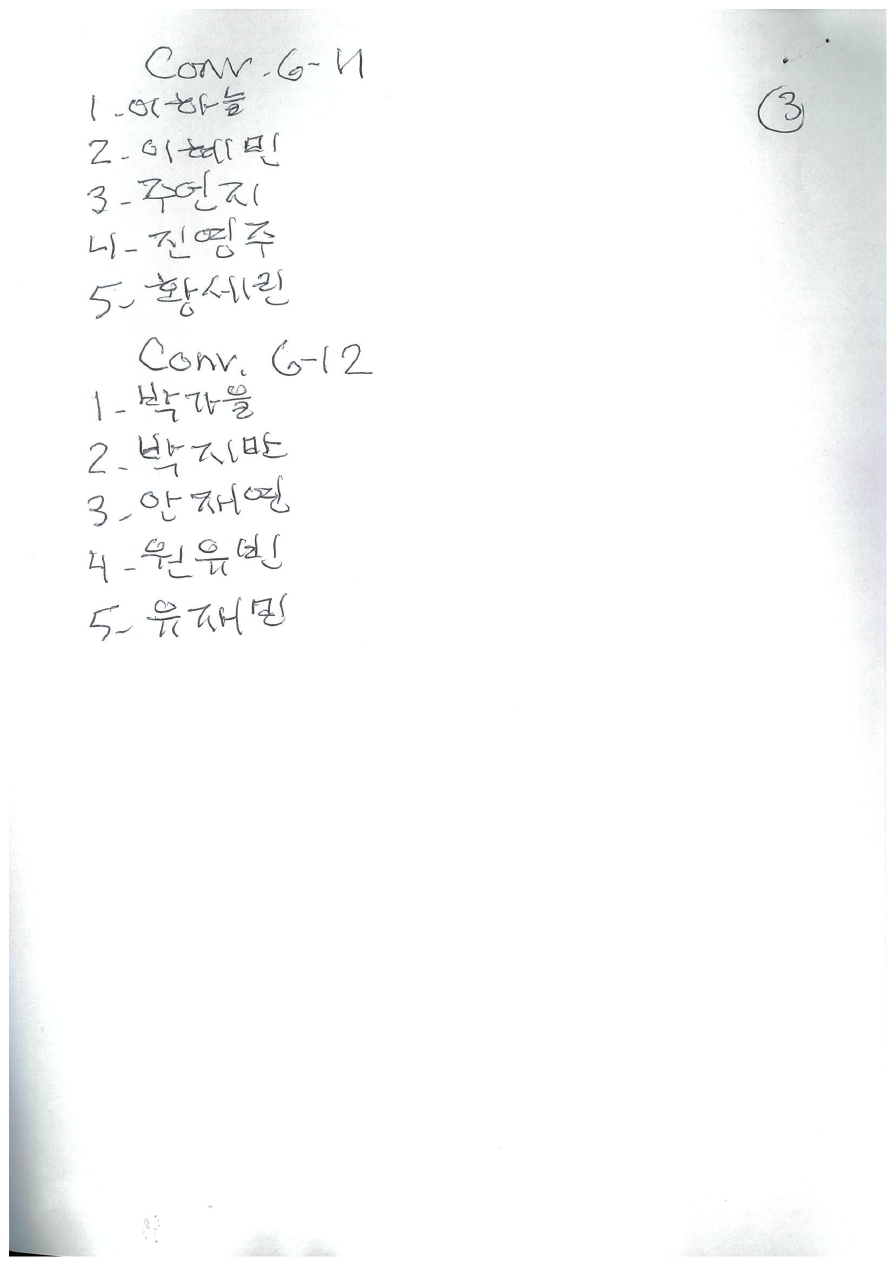 Conv. 6-11
③
1. 이하늘
2. 이혜민
3. 주언지
4. 진영주
5. 황세린
Conv. 6-12
1. 박가을
2. 박지만
3. 안재연
4. 원유빈
5. 유재민